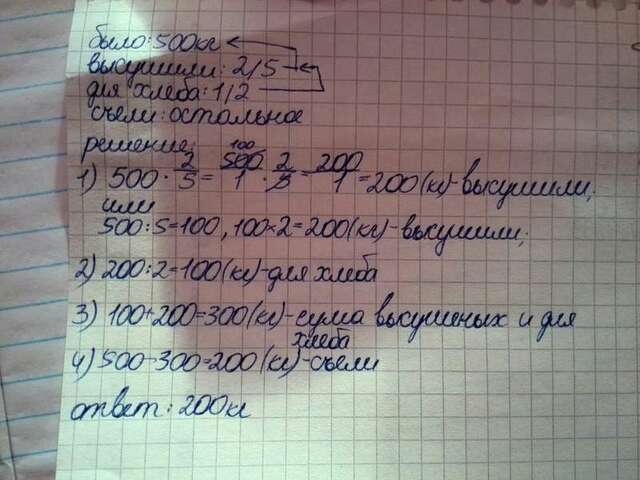 было: 500кг
высушили: 2/5
для хлеба: 1/2
съели: остальное
решение:
1) 500 · 2/5 = 500/1 · 2/5 = 200/1 = 200 (кг)-высушили;
100
или
500:5=100, 100×2=200(кг)-высушили;
2) 200:2=100(кг)-для хлеба
3) 100+200=300(кг)-сума высушеных и для
хлеба
4) 500-300=200(кг)-съели
ответ: 200кг